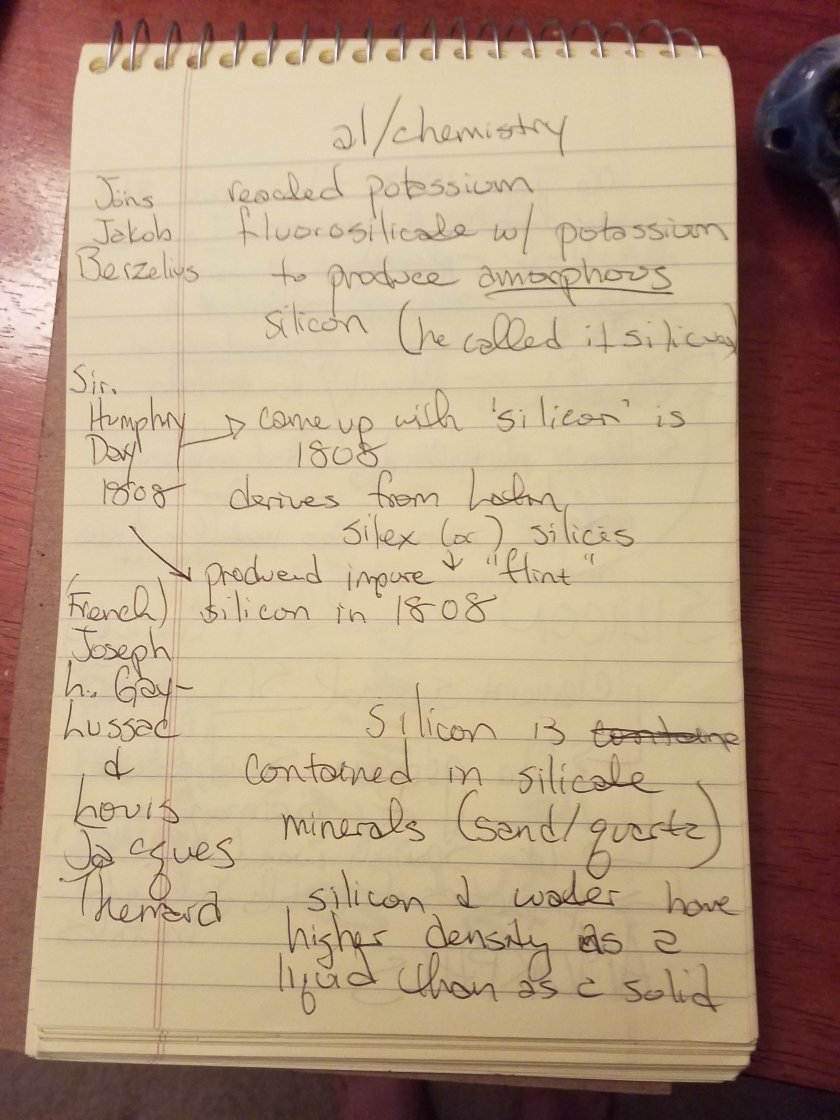 al/chemistry
Jöns reacted potassium
Jakob fluorosilicate w/ potassium
Berzelius to produce amorphous
silicon (he called it silicium)
Sir.
Humphry → come up with 'silicon' is
Davy 1808
1808 derives from Latin
silex (or) silicis
↓ "flint"
→ produced impure
(French) silicon in 1808
Joseph
L. Gay-
Lussac silicon is
& contained in silicate
Louis minerals (sand/quartz)
Jacques
Thenard silicon & water have
higher density as a
liquid than as a solid